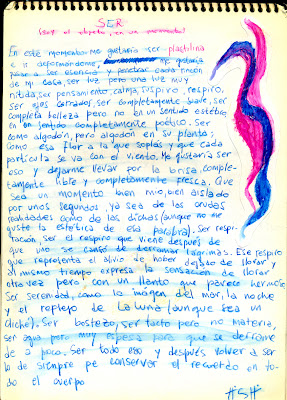 SER
(ser el objeto, en un momento)
En este momento me gustaría ser plastilina
e ir deformándome, me gustaría
pasar a ser esencia y penetrar cada rincón
de mi casa, ser luz pero una luz muy
nítida, ser pensamiento, calma, suspiro, respiro,
ser ojos cerrados, ser completamente suave, ser
completa belleza pero no en un sentido estético,
en un sentido completamente poético. Ser
como algodón, pero algodón en su planta;
como esa flor a la que soplas y que cada
partícula se va con el viento. Me gustaría ser
eso y dejarme llevar por la brisa, comple-
tamente libre y completamente fresca. Que
sea un momento bien mío, bien aislado
por unos segundos, ya sea de las crudas
realidades como de las dichas (aunque no me
guste la estética de esa palabra). Ser respi-
ración, ser el respiro que viene después de
que uno se cansó de derramar lágrimas. Ese respiro
que representa el alivio de haber dejado de llorar y
al mismo tiempo expresa la sensación de llorar
otra vez pero, con un llanto que parece hermoso
Ser serenidad, como la imagen del mar, la noche
y el reflejo de La luna (aunque sea un
cliché). Ser bostezo, ser tacto pero no materia,
ser agua pero muy espesa para que se derrame
de a poco. Ser todo eso y después volver a ser
lo de siempre pe conservar el recuerdo en to-
do el cuerpo
#S#